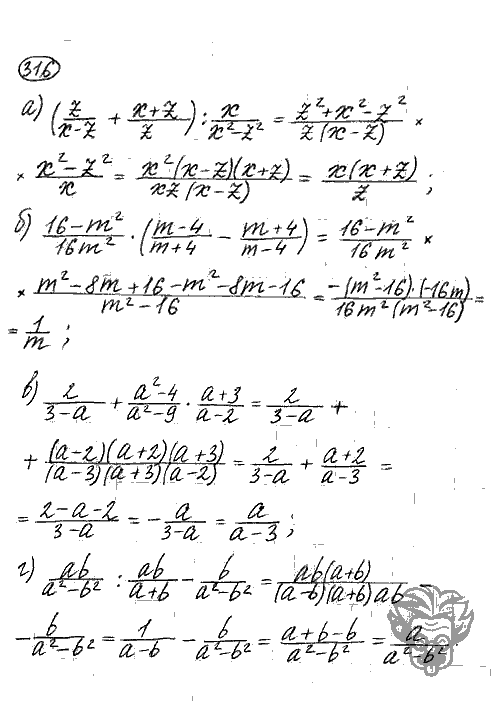 316
а) (z/(x-z) + (x+z)/z) : x/(x²-z²) = (z²+x²-z²)/(z(x-z)) ×
× (x²-z²)/x = (x²(x-z)(x+z))/(xz(x-z)) = (x(x+z))/z ;
б) (16-m²)/(16m²) · ((m-4)/(m+4) - (m+4)/(m-4)) = (16-m²)/(16m²) ×
× (m²-8m+16-m²-8m-16)/(m²-16) = (-(m²-16)·(-16m))/(16m²(m²-16)) =
= 1/m ;
в) 2/(3-a) + (a²-4)/(a²-9) · (a+3)/(a-2) = 2/(3-a) +
+ ((a-2)(a+2)(a+3))/((a-3)(a+3)(a-2)) = 2/(3-a) + (a+2)/(a-3) =
= (2-a-2)/(3-a) = -a/(3-a) = a/(a-3) ;
г) ab/(a²-b²) : ab/(a+b) - b/(a²-b²) = (ab(a+b))/((a-b)(a+b)ab) -
- b/(a²-b²) = 1/(a-b) - b/(a²-b²) = (a+b-b)/(a²-b²) = a/(a²-b²) .